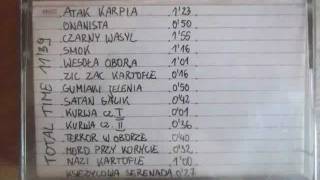 ATAK KARPIA 1'23
ONANISTA 0'50
CZARNY WASYL 1'55
SMOK 1'16
WESOŁA OBORA 1'01
ZIC ZAC KARTOFLE 0'16
GUMIAWI JELENIA 0'50
SATAN GALIK 0'42
KURWA CZ. I 0'01
KURWA CZ. II 0'36
TERROR W OBORZE 0'40
MORD PRZY KORYCIE 0'32
NAZI KARTOFLE 1'00
KSIĘŻYCOWA SERENADA 0'27
TOTAL TIME 11'39